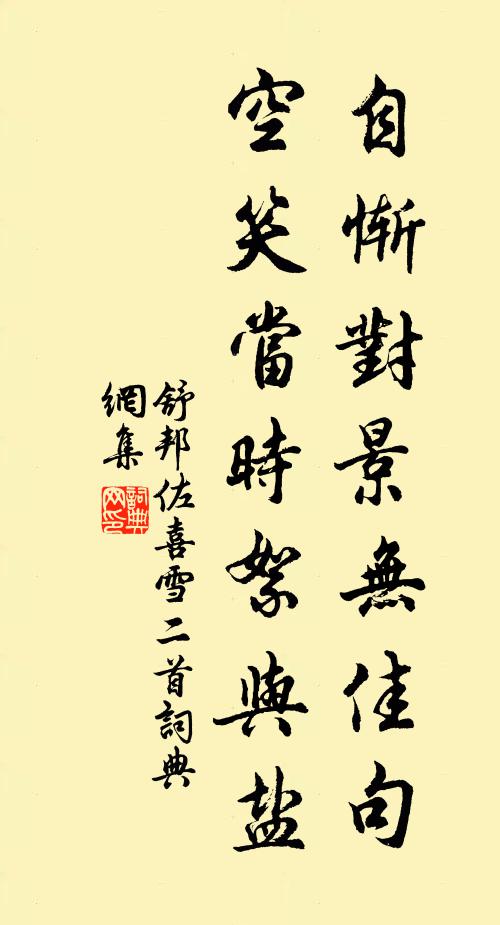 自慚對景無佳句
空笑當時絮與鹽
舒邦佐喜雪二首詞典
網集
詞典
网印